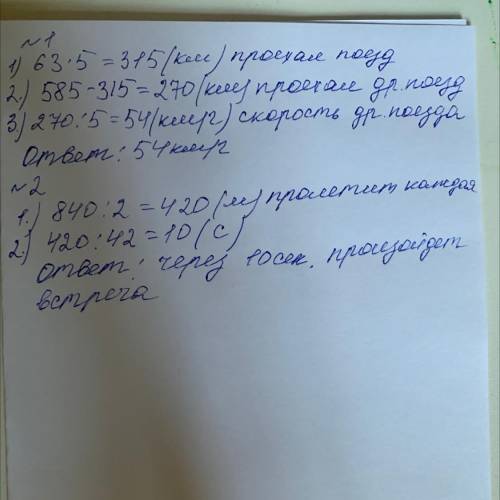 №1
1) 63·5=315(км) проехал поезд
2.) 585-315=270(км) проехал др.поезд
3.) 270:5=54(км/г) скорость др.поезда
Ответ: 54км/г
№2
1.) 840:2=420(м) пролетит каждая
2.) 420:42=10(с)
Ответ: через 10сек. произойдет
встреча